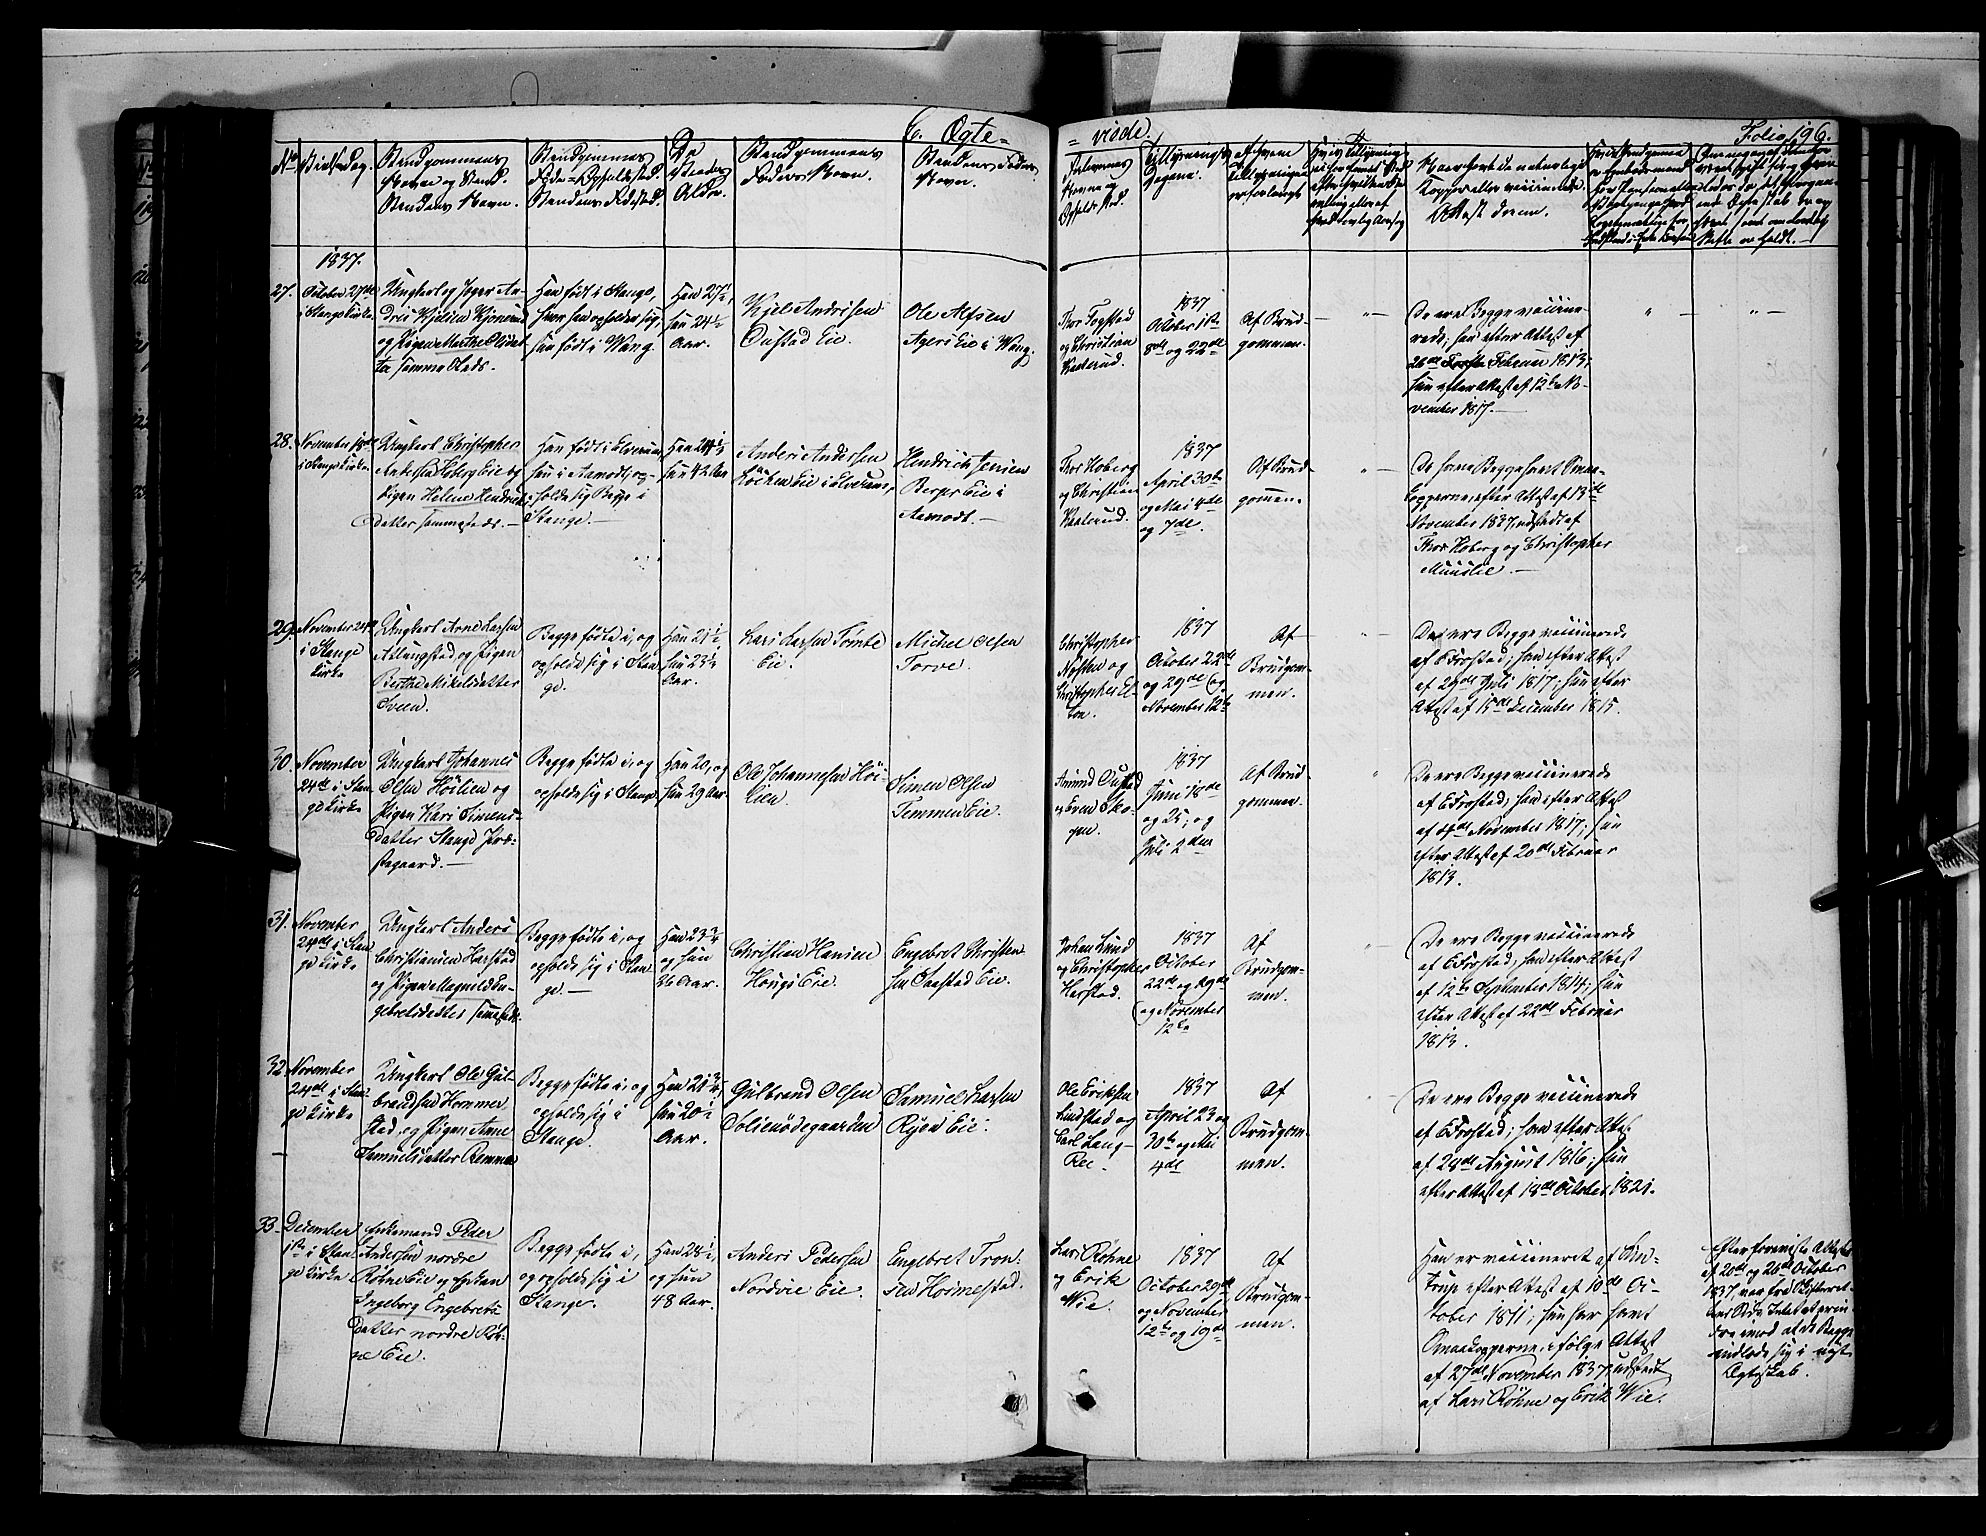 6. Ægte=
= viede.
Folio 196.
No
Vielses Dag.
Brudgommens
Navn og Stand.
Brudens Navn.
Brudgommens
Føde= Opholdssted.
Brudens Fødested.
De
Viedes
Alder.
Brudgommens
Faders Navn.
Brudens Faders
Navn.
Forlovernes
Navne og
Opholdssted.
Tillysnings
Dagene.
af hvem
Tillysningen
er forlangt.
Naar hver de naturlige
Kopper eller vaccinerede.
Attest derom.
1837.
27.
October 27de
i Stange Kirke.
Ungkarl og Jæger An-
dris Kjelsen
og Pigen Marthe Olsdat-
ter sammesteds.
Han født i Stange,
hvor han opholder sig,
hun født i Wang.
Han 27½,
hun 24½
Aar.
Kjel Andrisen
Oustad Eie.
Ole Alfsen
Ageri Eie i Wang.
Thor Fogstad
og Christian
Kaaterud.
1837
October 1ste
8de og 22de
Af Brud-
gommen.
De ere Begge vaccine-
rede; han efter Attest af
26de Februar 1813;
hun efter Attest af 12te No-
vember 1817.
28.
November 18de
i Stange Kirke.
Ungkarl Christopher
Andersen Hoberg Eie og
Pigen Helene Hendriks
Datter sammesteds.
Han født i Elverum,
hun i Aamodt, op-
holde sig Begge i
Stange.
Han 24½
hun 42 Aar
Anders Andersen
Løkken Eie i Elverum,
Hendrich Jensen
Berger Eie i
Aamodt.
Thor Hoberg
og Christian
Kaaterud.
1837
April 30te
og Mai 4de
og 7de.
Af Brud-
gommen.
De have Begge havt Smaa-
kopperne, efter Attest af 13de
November 1837, udstedt af
Thor Hoberg og Christopher
29.
November 24de
i Stange
Kirke
Ungkarl Arne Larsen
Atlungstad og Pigen
Berthe Mikelsdatter
Sveen.
Begge fødte i, og
opholde sig i Stan-
ge.
Han 21½
hun 23½
Aar.
Lars Larsen Tømte
Eie.
Michel Olsen
Torve.
Christopher
Nøtten og
Christopher El-
ton.
1837
October 22de
og 29de og
November 12te
Af
Brudgom-
men.
De ere Begge vaccinerede
af C Frostad; han efter Attest
af 29de Juli 1817; hun efter
Attest af 15de December 1815.
30.
November
24de i Stan-
ge Kirke
Ungkarl Johannes
Olsen Høilien og
Pigen Kari Simens-
datter Stange Præ-
stegaard.
Begge fødte i, og
opholde sig i Stange
Han 20, og
hun 29 Aar.
Ole Johannesen Høi-
lien.
Simen Olsen
Temmen Eie.
Amund Oustad
og Even Sko-
gen.
1837
Juni 18de
og 25; og
Juli 2den
Af Brud-
gommen.
De ere Begge vaccinerede
af C Frostad; han efter Attest
af November 1817; hun
efter Attest af 20de Februar
1813.
31.
November
24de i Stan-
ge Kirke
Ungkarl Anders
Christiansen Harstad
og Pigen Magnild En-
gebretsdatter sammesteds.
Begge fødte i, og
opholde sig i Stan-
ge.
Han 23¾
og hun
26 Aar.
Christian Hansen
Hougs Eie.
Engebret Christen-
sen Saastad Eie.
Johan Lund
og Christopher
Harstad.
1837
October
22de og 29de
og November
12te
Af
Brudgom-
men.
De ere Begge vaccinerede
af C Frostad; han efter Attest
af 12te September 1814; hun
efter Attest af 22de Februar
1813.
32
November
24de i Stan-
ge Kirke
Ungkarl Ole Gul-
brandsen Hommer
stad, og Pigen Anne
Samuelsdatter Remmen
Begge fødte i, og
opholde sig i
Stange.
Han 21¾,
hun 20½
Aar.
Gulbrand Olsen
Solienødegaarden
Samuel Larsen
Ryen Eie.
Ole Eriksen
Lindstad og
Carl Lang-
Ree.
1837
April 23 og
30te og Mai
4de
Af
Brudgom-
men.
De ere Begge vaccinerede
af C Frostad; han efter Attest
af 28de August 1816; hun
efter Attest af 18de October 1821.
33.
December
1ste i Stan-
ge Kirke
Enkemand Peder
Andersen nordre
Røhne Eie og Enken
Ingeborg Engebrets
datter nordre Røh-
ne Eie.
Begge fødte i,
og opholde sig i
Stange.
Han 28½,
og hun
48 Aar.
Anders Pedersen
Nordvie Eie.
Engebret Tron-
sen Hommestad.
Lars Røhne
og Erik
Wie.
1837
October 29de
og November
12te og 19de
Af
Brudgom-
men.
Han er vaccineret af Sin-
trup efter Attest af 10de Oc-
tober 1811; hun har havt
Smaakopperne, i følge Attest
af 27de November 1837, udstedt
af Lars Røhne og Erik Wie.
Efter foreviste Attester
af 20de og 26de October
1837 var fra Skifteret-
tens Side Intet at erin-
dre imod at de Begge
indlode sig i nyt
Ægteskab.